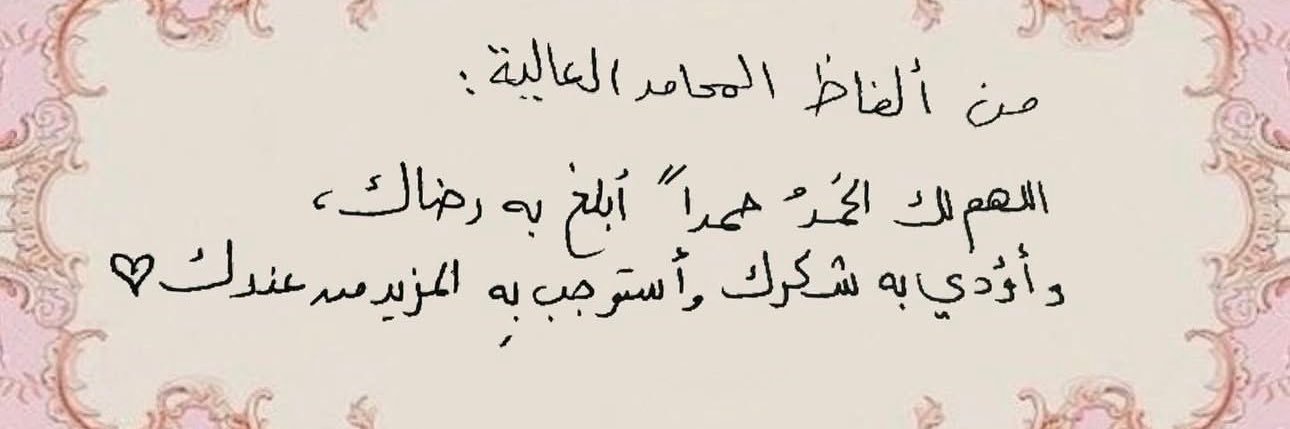 من ألفاظ المحامد العالية :
اللهم لك الحَمدُ حمداً أبلغ به رضاك،
وأؤدي به شكرك وأستوجب بِهِ المزيد من عندك ♡